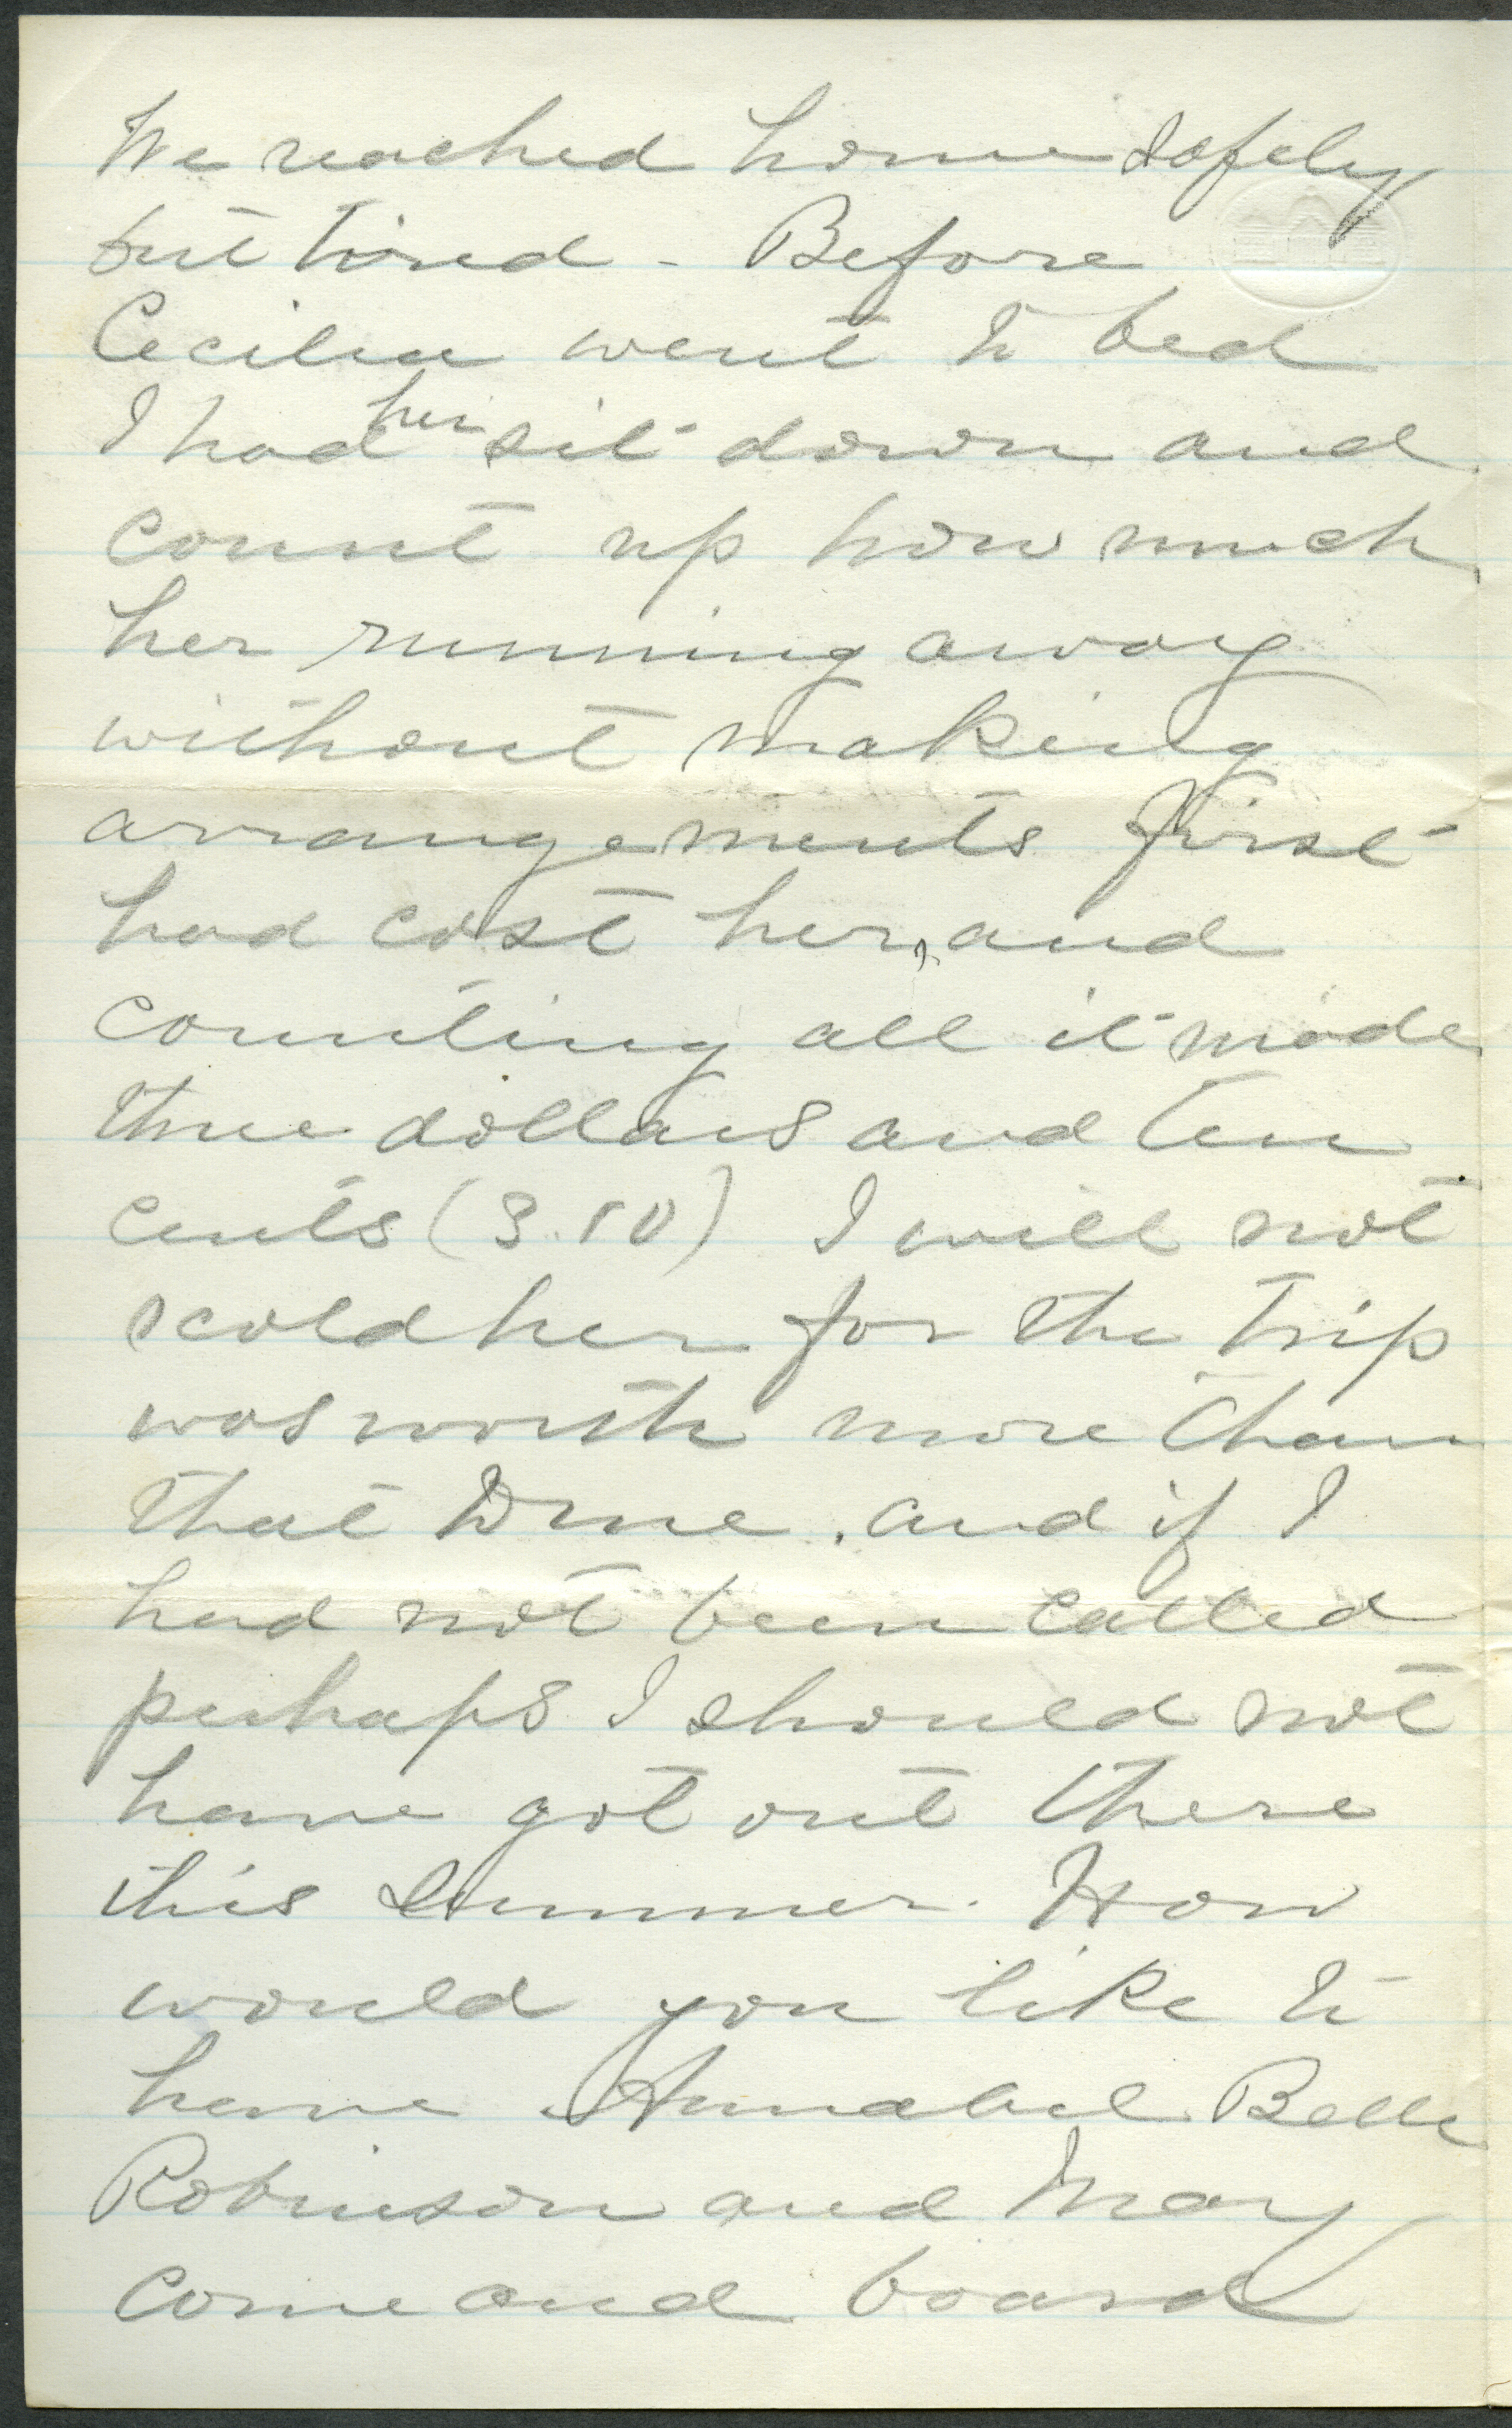 We reached home safely
but tired - Before
Cecilia went to bed
I had her sit down and
count up how much
her running away
without making
arrangements first
had cost her, and
counting all it made
three dollars and ten
cents (3.10) I will not
scold her for the trip
was worth more than
that to me. and if I
had not been called
perhaps I should not
have got out there
this summer. How
would you like to
have Annabel Belle
Robinson and Mary
come and board